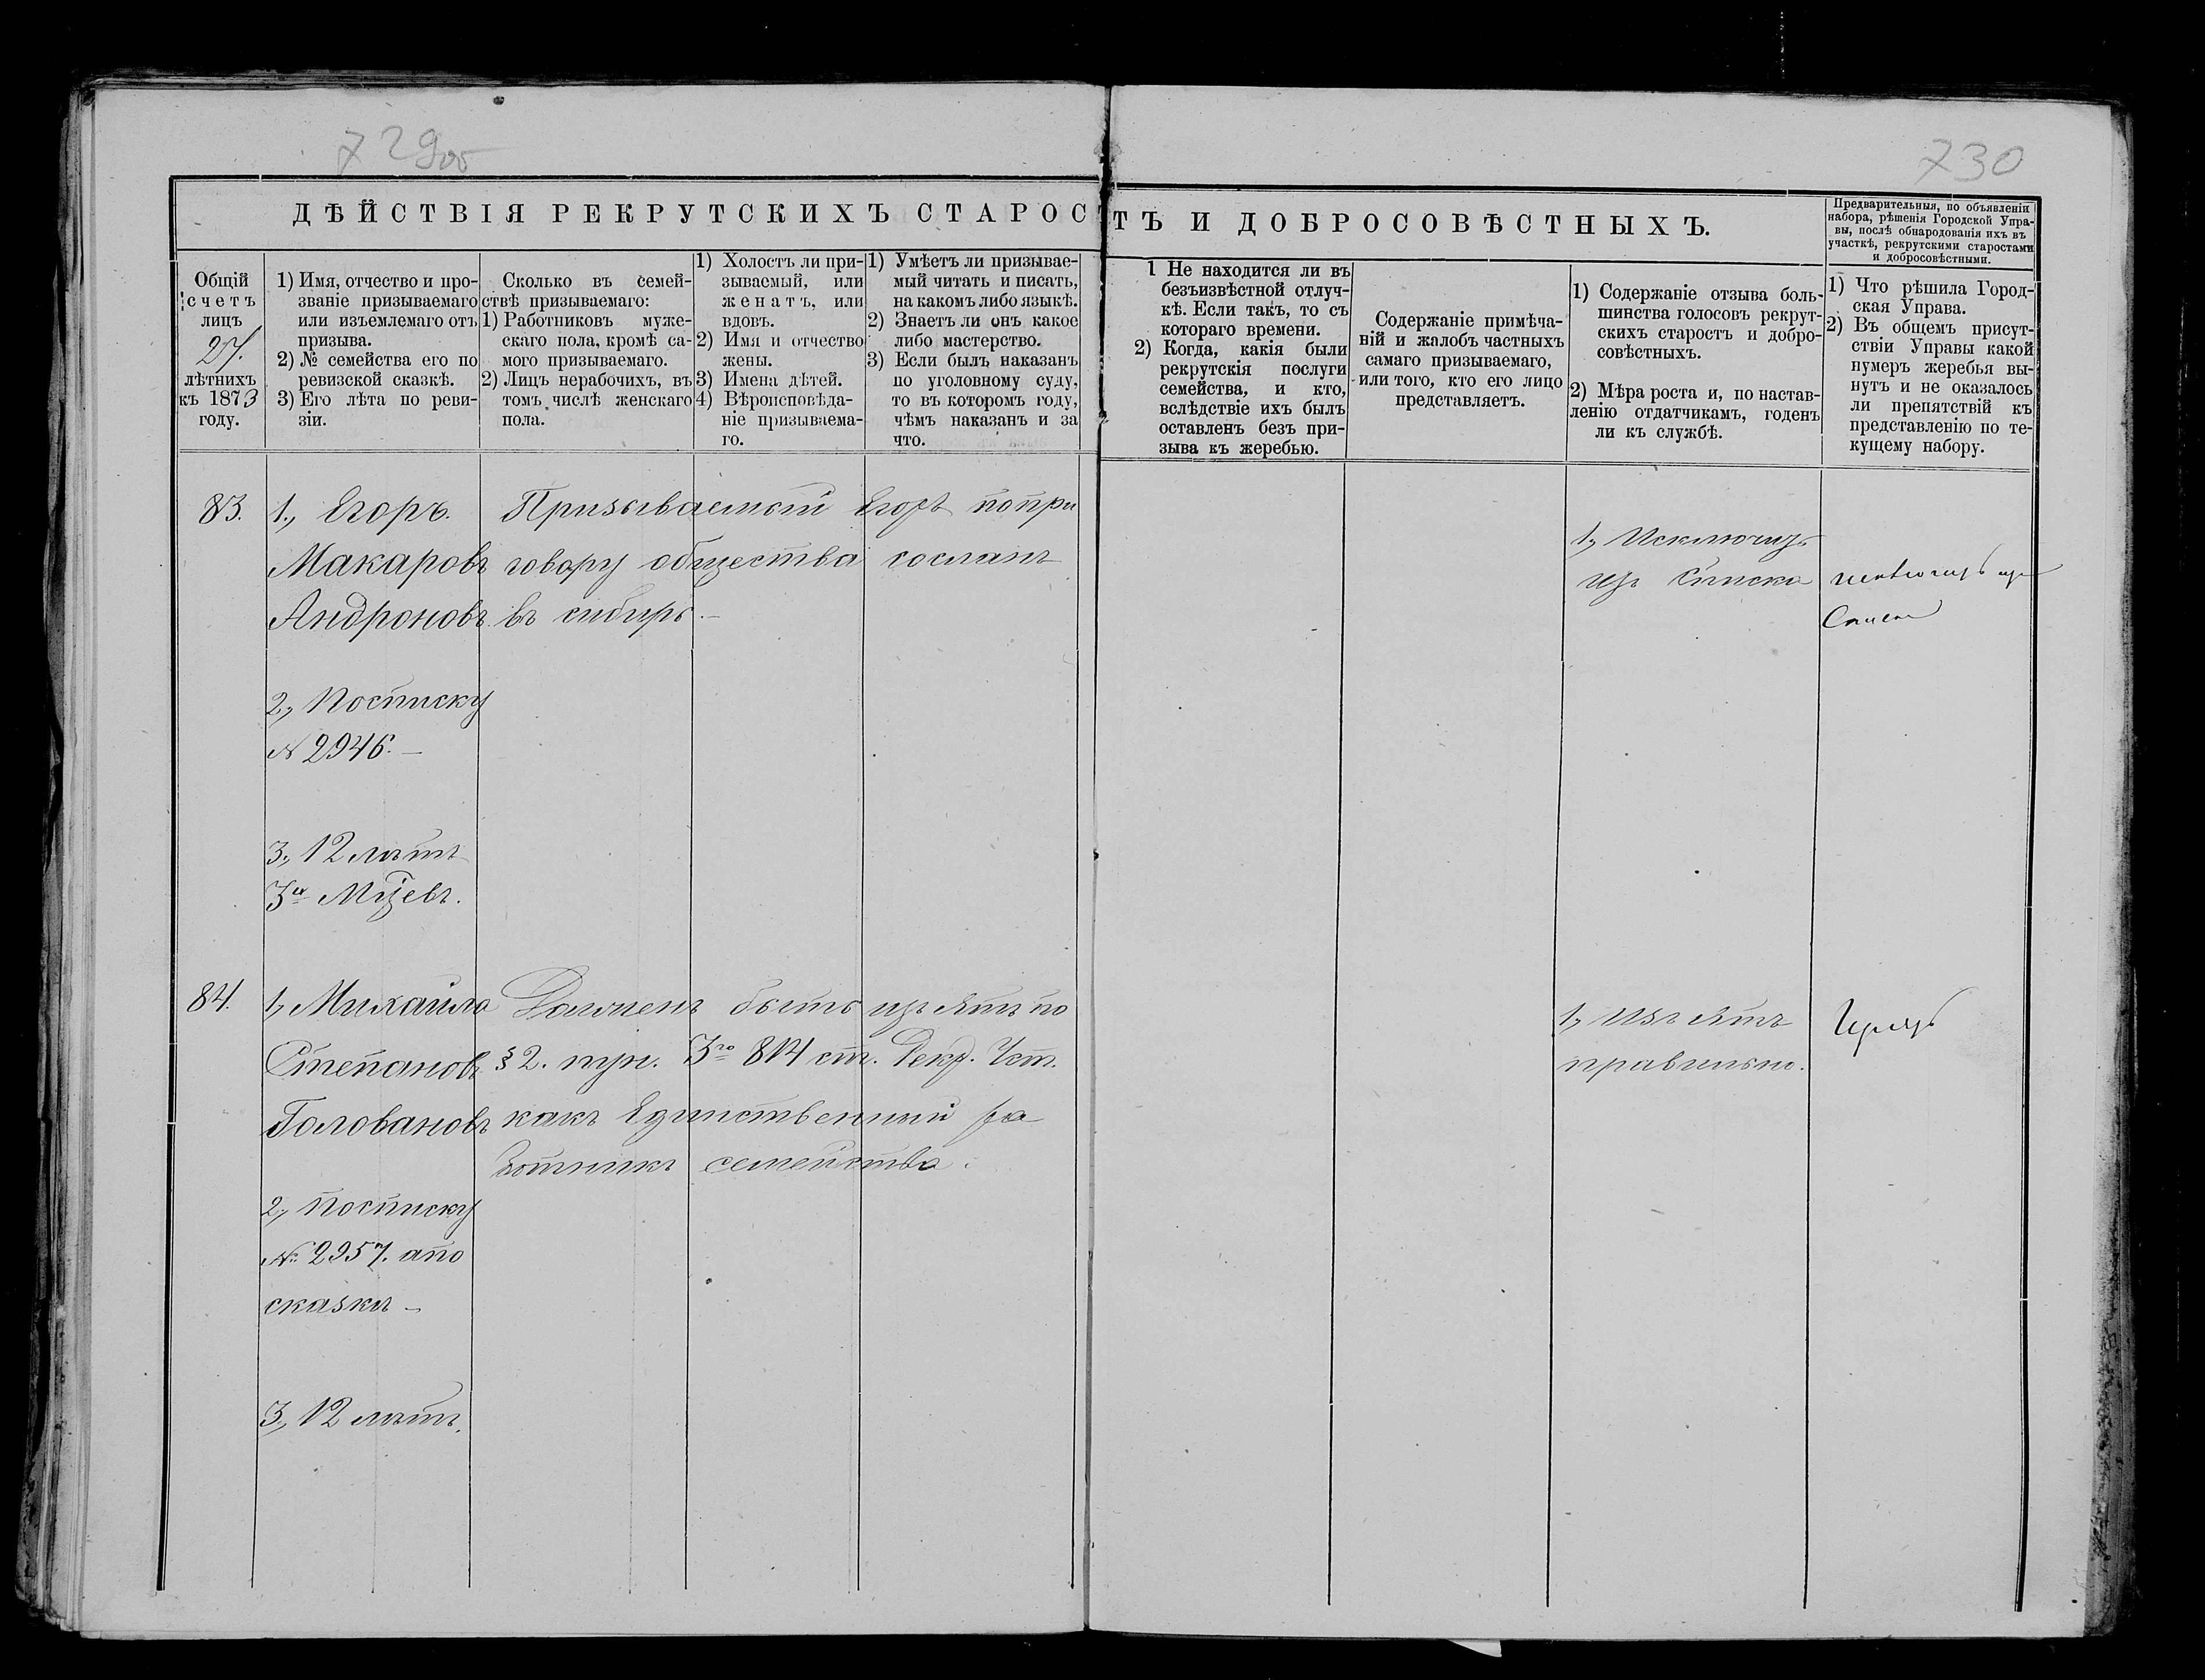 729об
730
ДѢЙСТВІЯ РЕКРУТСКИХЪ СТАРОСТЪ И ДОБРОСОВѢСТНЫХЪ.
Предварительныя, по объявленіи
набора, рѣшенія Городской Упра-
вы, послѣ обнародованія ихъ въ
участкѣ, рекрутскими старостами
и добросовѣстными.
Общій
счетъ
лицъ
27.
лѣтнихъ
къ 1873
году.
1) Имя, отчество и про-
званіе призываемаго
или изъемлемаго отъ
призыва.
2) № семейства его по
ревизской сказкѣ.
3) Его лѣта по реви-
зіи.
Сколько въ семей-
ствѣ призываемаго:
1) Работниковъ муже-
скаго пола, кромѣ са-
мого призываемаго.
2) Лицъ нерабочихъ, въ
томъ числѣ женскаго
пола.
1) Холостъ ли при-
зываемый, или
женатъ, или
вдовъ.
2) Имя и отчество
жены.
3) Имена дѣтей.
4) Вѣроисповѣда-
ніе призываема-
го.
1) Умѣетъ ли призывае-
мый читать и писать,
на какомъ либо языкѣ.
2) Знаетъ ли онъ какое
либо мастерство.
3) Если былъ наказанъ
по уголовному суду,
то въ которомъ году,
чѣмъ наказанъ и за
что.
1 Не находится ли въ
безъизвѣстной отлуч-
кѣ. Если такъ, то съ
котораго времени.
2) Когда, какія были
рекрутскія послуги
семейства, и кто,
вслѣдствіе ихъ былъ
оставленъ безъ при-
зыва къ жеребью.
Содержаніе примѣча-
ній и жалобъ частныхъ
самаго призываемаго,
или того, кто его лицо
представляетъ.
1) Содержаніе отзыва боль-
шинства голосовъ рекрут-
скихъ старостъ и добро-
совѣстныхъ.
2) Мѣра роста и, по настав-
ленію отдатчикамъ, годенъ
ли къ службѣ.
1) Что рѣшила Город-
ская Управа.
2) Въ общемъ присут-
ствіи Управы какой
нумеръ жеребья вы-
нутъ и не оказалось
ли препятствій къ
представленію по те-
кущему набору.
83.
1., Егоръ.
Макаровъ
Андроновъ
2., Посписку
№ 2946. —
3., 12 лѣтъ
3х Мцевъ.
Призываемый Егоръ попри
говору общества сосланъ
въ сибирь. —
1., Исключить
изъ Списка
исключить изъ
Списка
84.
1., Михайло
Степановъ
Головановъ
2., посписку
№ 2957. апо
сказкѣ —
3., 12 лѣтъ.
Долженъ быть изъятъ по
§ 2. при. 3го 814 ст. Рекр. Уст.
какъ Единственный ра
ботникъ семейства.
1., Изъятъ
правильно.